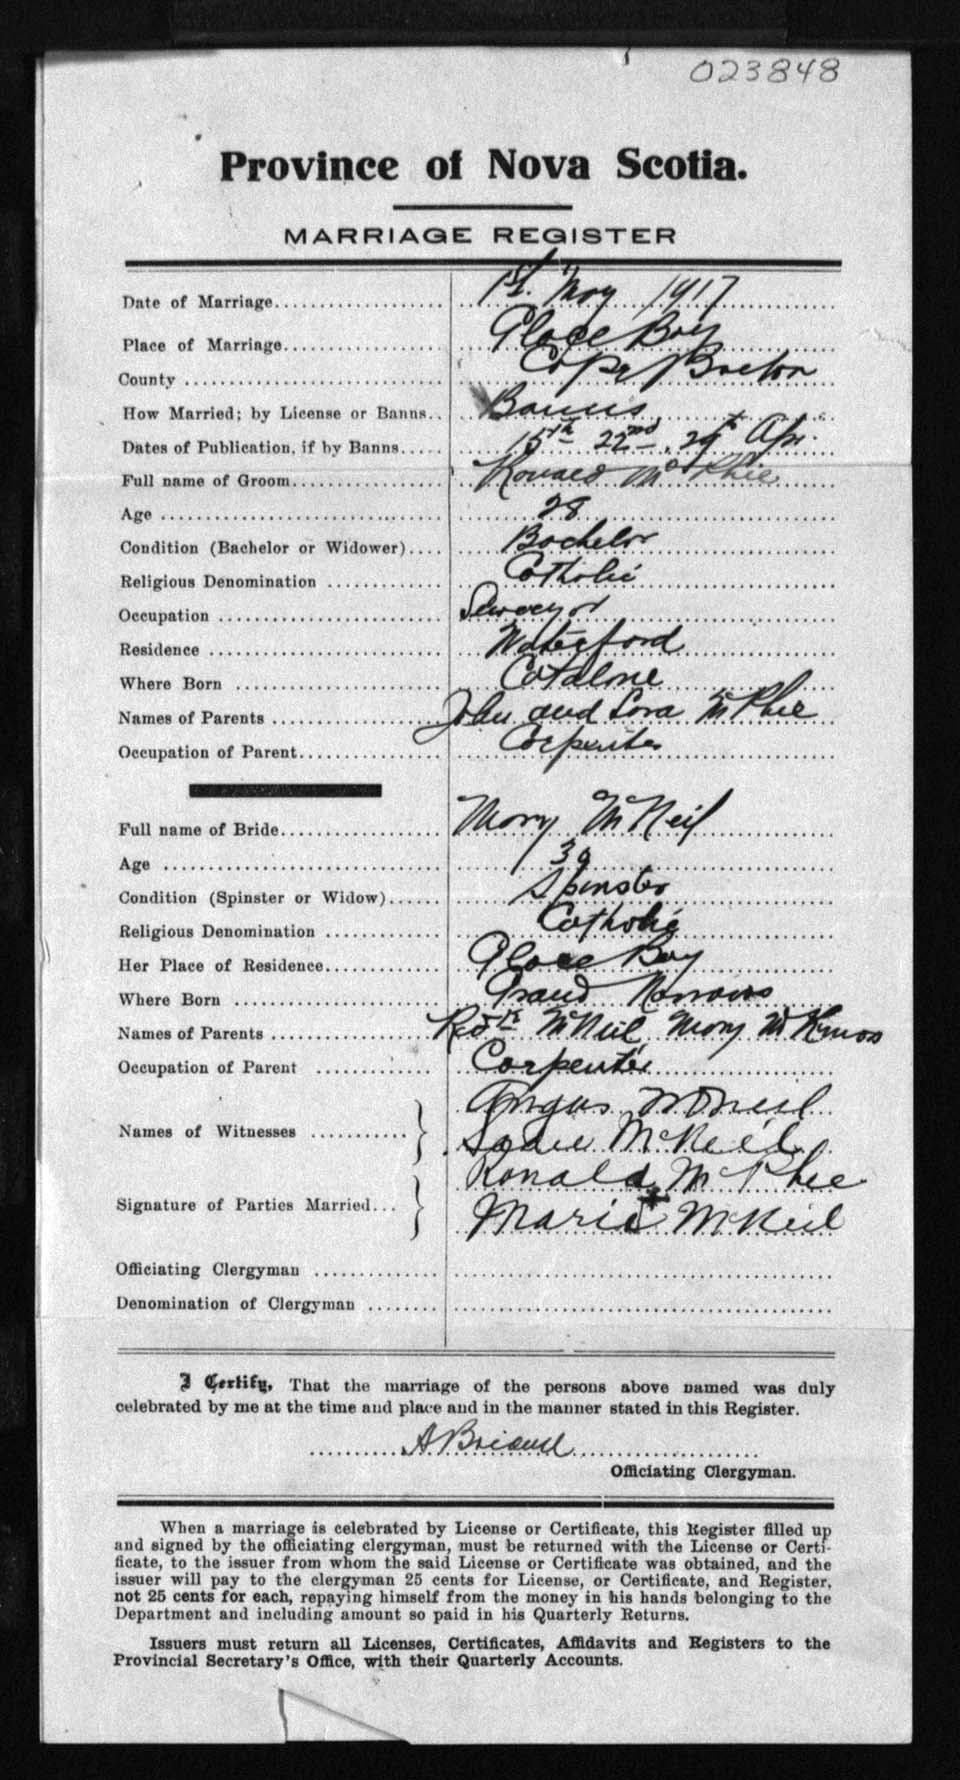 023848
Province of Nova Scotia.
MARRIAGE REGISTER
Date of Marriage 1st. May 1917
Place of Marriage Glace Bay
County Cape Breton
How Married; by License or Banns Banns
Dates of Publication, if by Banns 15th 22nd 29th Apr.
Full name of Groom Ronald McPhee
Age 28
Condition (Bachelor or Widower) Bachelor
Religious Denomination Catholic
Occupation Surveyor
Residence Waterford
Where Born Catalone
Names of Parents John and Sara McPhee
Occupation of Parent Carpenter
Full name of Bride Mary McNeil
Age 39
Condition (Spinster or Widow) Spinster
Religious Denomination Catholic
Her Place of Residence Glace Bay
Where Born Grand Narrows
Names of Parents McNeil Mary
Occupation of Parent Carpenter
Names of Witnesses Angus McNeil
Sadie McNeil
Signature of Parties Married Ronald McPhee
Marie McNeil
Officiating Clergyman
Denomination of Clergyman
I Certify, That the marriage of the persons above named was duly
celebrated by me at the time and place and in the manner stated in this Register.
A Briand
Officiating Clergyman.
When a marriage is celebrated by License or Certificate, this Register filled up
and signed by the officiating clergyman, must be returned with the License or Certi-
ficate, to the issuer from whom the said License or Certificate was obtained, and the
issuer will pay to the clergyman 25 cents for License, or Certificate, and Register,
not 25 cents for each, repaying himself from the money in his hands belonging to the
Department and including amount so paid in his Quarterly Returns.
Issuers must return all Licenses, Certificates, Affidavits and Registers to the
Provincial Secretary's Office, with their Quarterly Accounts.